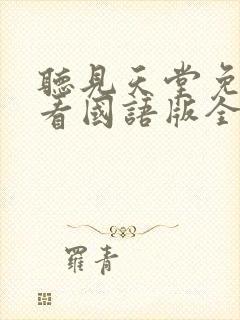 聽見天堂免
看國語版全
羅青